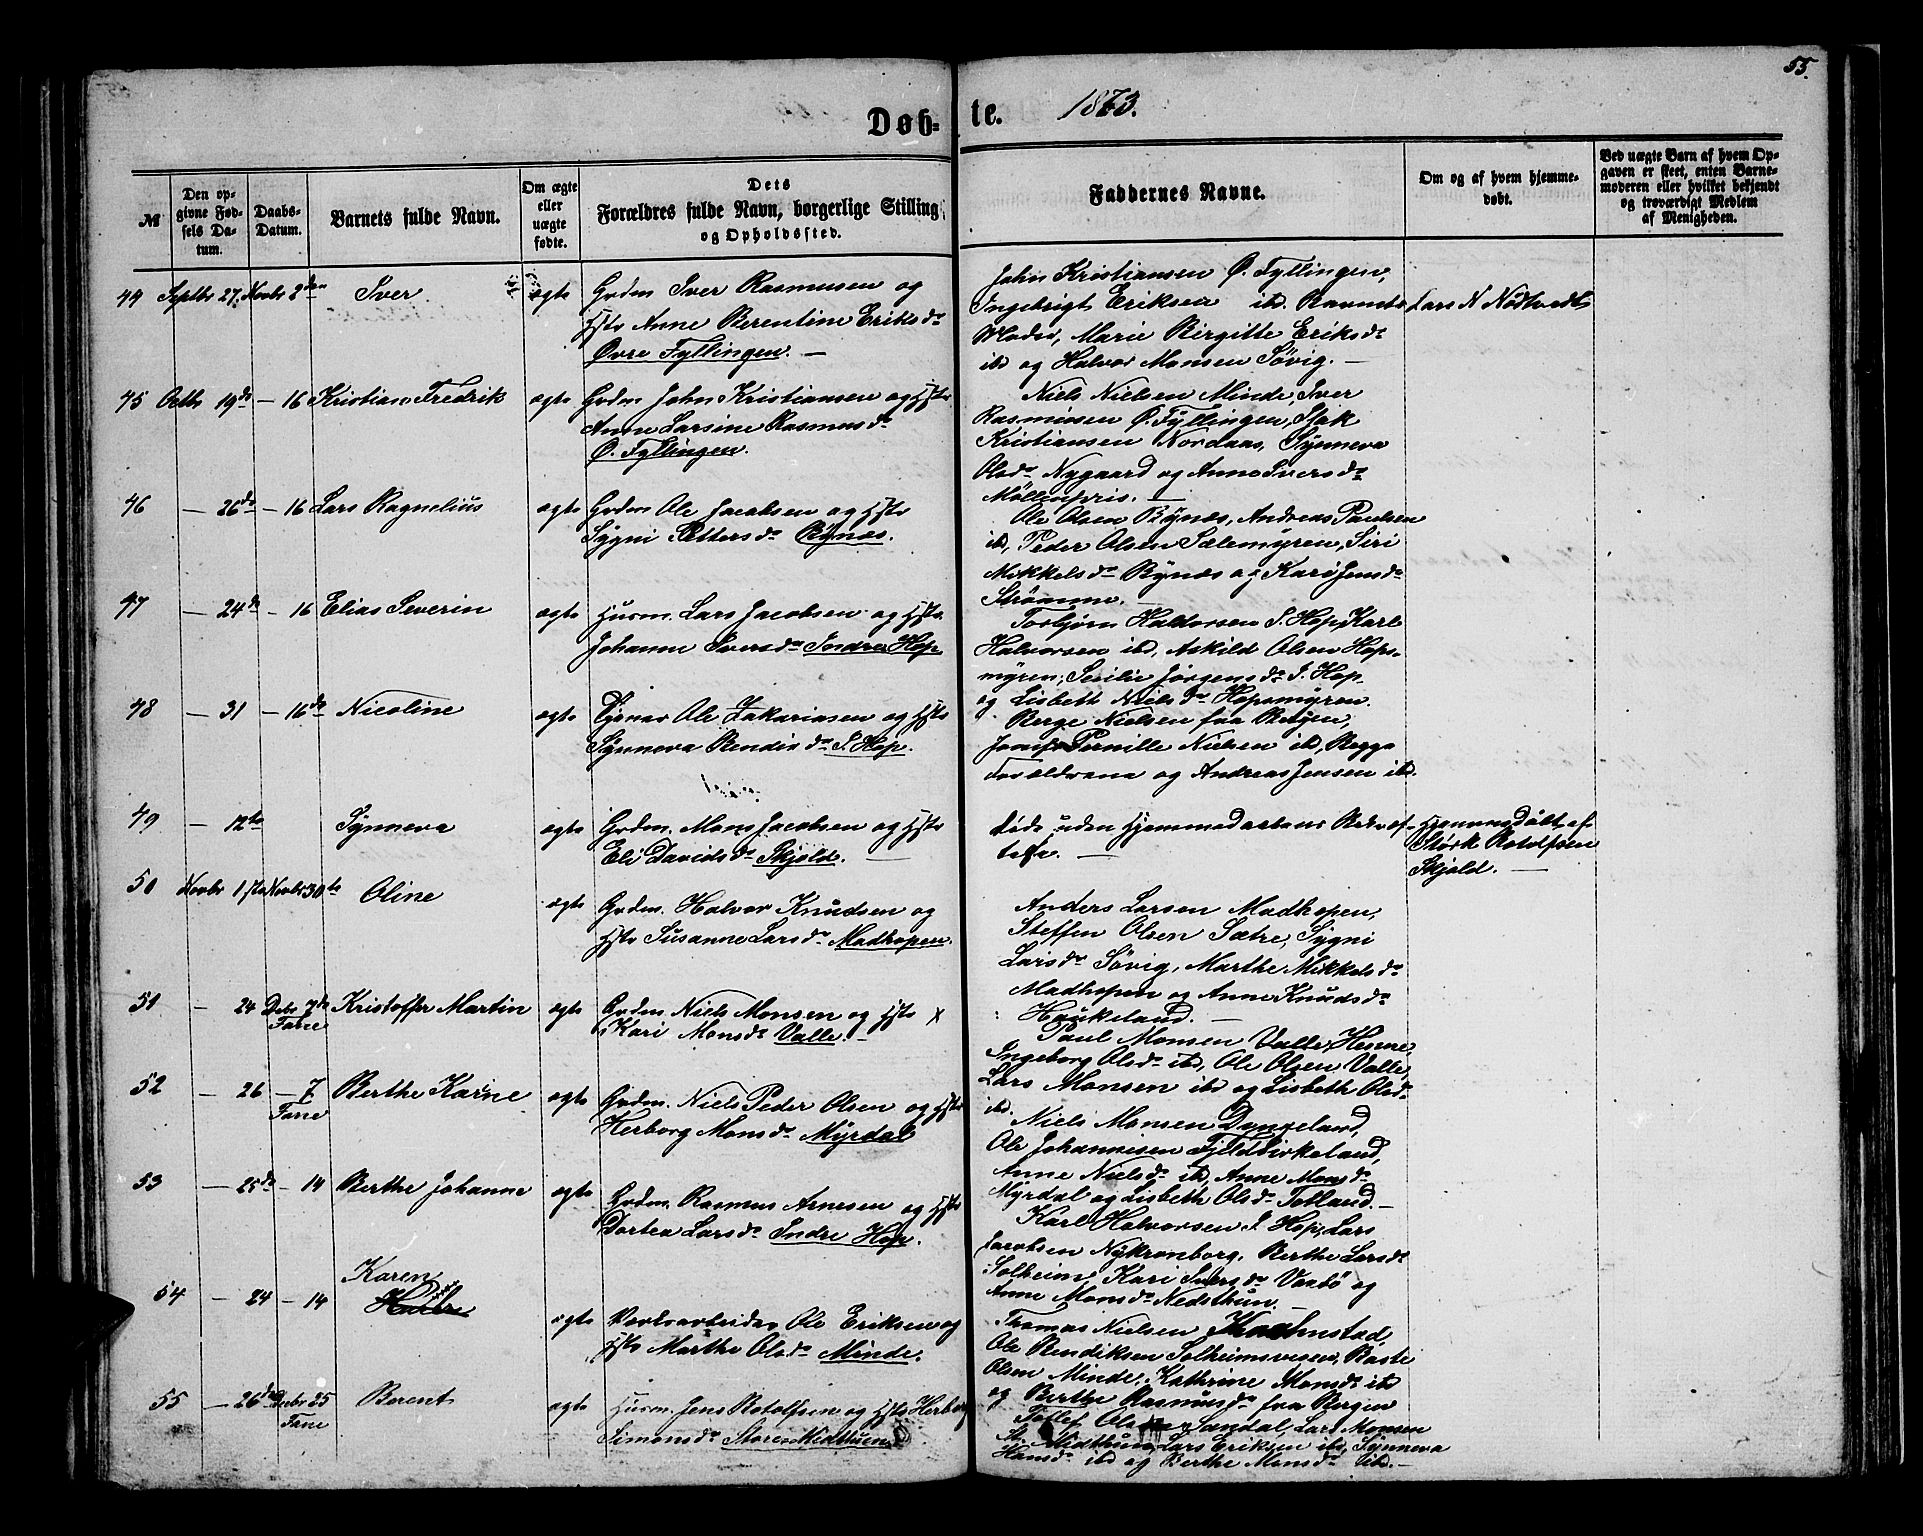 55.
Døb-te. 1873.
№
Den opgivne Fødsels Datum.
Daabs-Datum.
Barnets fulde Navn.
Om ægte eller uægte fødte.
Dets Forældres fulde Navn, borgerlige Stilling og Opholdssted.
Faddernes Navne.
Om og af hvem hjemmedøbt.
Ved uægte Barn af hvem Opgaven er skeet, enten Barnemoderen eller hvilket bekjendt og troværdigt Medlem af Menigheden.
44 Septbr 27. Novbr 2den Iver ægte Grdm. Iver Rasmusen og
Hstr Anne Berentine Eriksdr
Øvre Fyllingen. —
John Kristiansen Ø. Fyllingen,
Ingebrigt Eriksen ibd. Barnets
Moder, Marie Birgitte Eriksdr
ibd og Halvor Monsen Søvig. —
Lars N Nødtvedt
45 Octbr 19de — 16 Kristian Fredrik ægte Grdm John Kristiansen og Hstr
Anne Larsine Rasmusdr
Ø. Fyllingen.
Niels Nielsen Minde, Iver
Rasmusen Ø. Fyllingen, Isak
Kristiansen Nordaas, Synneva
Olsdr Nygaard og Anne Iversdr
Møllenpris. —
46 — 26de — 16 Lars Ragnelius ægte Grdm Ole Jacobsen og Hstr
Sygni Pettersdr Bønæs.
Ole Olsen Bønæs, Andreas Paulsen
ibd, Peder Olsen Sælemyren, Siri
Mikkelsdr Bønæs og Kari Jensdr
Strømme. —
47 — 24de — 16 Elias Severin ægte Husm. Lars Jacobsen og Hstr
Johanne Iversdr Indre Hop
Torbjørn Haldorsen I. Hop, Karl
Halvorsen ibd, Askild Olsen Hops-
myren, Secilie Jörgensdr I. Hop
og Lisbeth Nielsdr Hopsmyren.
48 — 31 — 16de Nicoline ægte Ole Zakariasen og Hstr
Synneva Bendixdr I. Hop.
Berge Nielsen fra Bergen,
Jomfr Pernille Nielsen ibd, Begge
Forældrene og Andreas Jensen ibd.
49 — 12te Synneva ægte Grdm. Mons Jacobsen og Hstr
Eli Davidsdr Skjold. —
døde uden Hjemmedaabens
—
Hjemmedøbt af
Størk Rotolfsen
Skjold. —
50 Novbr 1ste Novbr 30te Oline ægte Grdm. Halvor Knudsen og
Hstr Susanne Larsdr Madhopen.
Anders Larsen Madhopen,
Steffen Olsen Sætre, Sygni
Larsdr Søvig, Marthe Mikkelsdr
Madhopen og Anne Knudsdr
Haukeland. —
51 — 24 Debr 7de Kristoffer Martin ægte Grdm Niels Monsen og Hstr X
Fane Kari Monsdr Valle. —
Paul Monsen Valle,
Ingeborg Olsdr ibd, Ole Olsen Valle,
Lars Monsen ibd og Lisbeth Olsdr
ibd.
52 — 26 — 7 Berthe Karine ægte Grdm. Niels Peder Olsen og Hstr
Fane Herborg Monsdr Myrdal
Niels Monsen Dyngeland,
Ole Johannesen Fjeldbirkeland,
Anne Nielsdr ibd, Anne Monsdr
Myrdal og Lisbeth Olsdr Totland. —
53 — 25de — 14 Berthe Johanne ægte Grdm. Rasmus Arnesen og Hstr
Dortea Larsdr Indre Hop.
Karl Halvorsen I. Hop, Lars
Jacobsen Nykronborg, Berthe Larsdr
Solheim, Kari Iversdr og
Anne Monsdr Nedsthun. —
54 — 24 — 14 Karen ægte Værksarbeider Ole Eriksen og
Hstr Marthe Olsdr Minde.
Thomas Nielsen
Ole Bendiksen Solheimsvegen, Baste
Olsen Minde, Kathrine Monsdr ibd
og Berthe Rasmusdr fra Bergen
55 — 26de Debr 25 Berent ægte Husm. Jens Rotolfsen og Hstr Herborg
Fane Simonsdr Store Midthuen
Tollef Olsen Sandal, Lars Monsen
St. Midthun, Lars Eriksen ibd, Synneva
Hansdr ibd og Berthe Monsdr ibd. —